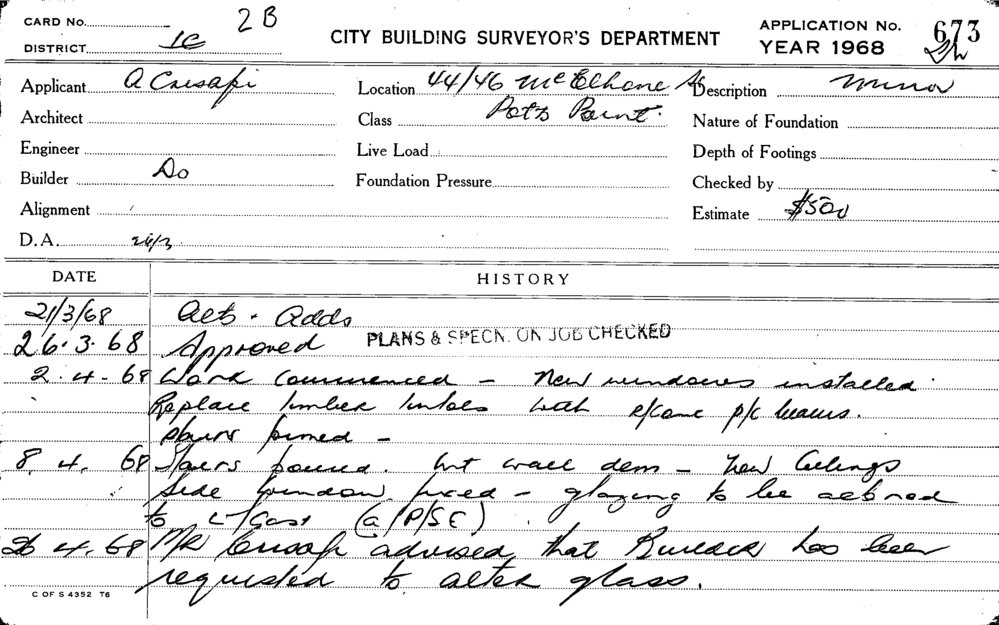 CARD No. 2B
DISTRICT 1C
CITY BUILDING SURVEYOR'S DEPARTMENT
APPLICATION No. 673
YEAR 1968
Applicant A Crisafi Location 44/46 McElhone St Description Minor
Architect Class Potts Point. Nature of Foundation
Engineer Live Load Depth of Footings
Builder Do Foundation Pressure Checked by
Alignment Estimate $500
D.A. 26/3
DATE HISTORY
21/3/68 Alts. Adds
26.3.68 Approved PLANS & SPECN. ON JOB CHECKED
2.4.68 Work commenced – New windows installed.
Replace timber lintols with p/c beams.
Stairs formed –
8.4.68 Stairs poured. Int wall dem – New Ceilings
Side window fixed – glazing to be altered
to (a/P/SE)
26.4.68 Mr Crisafi advised that Builder has been
requested to alter glass.
C OF S 4352 T6